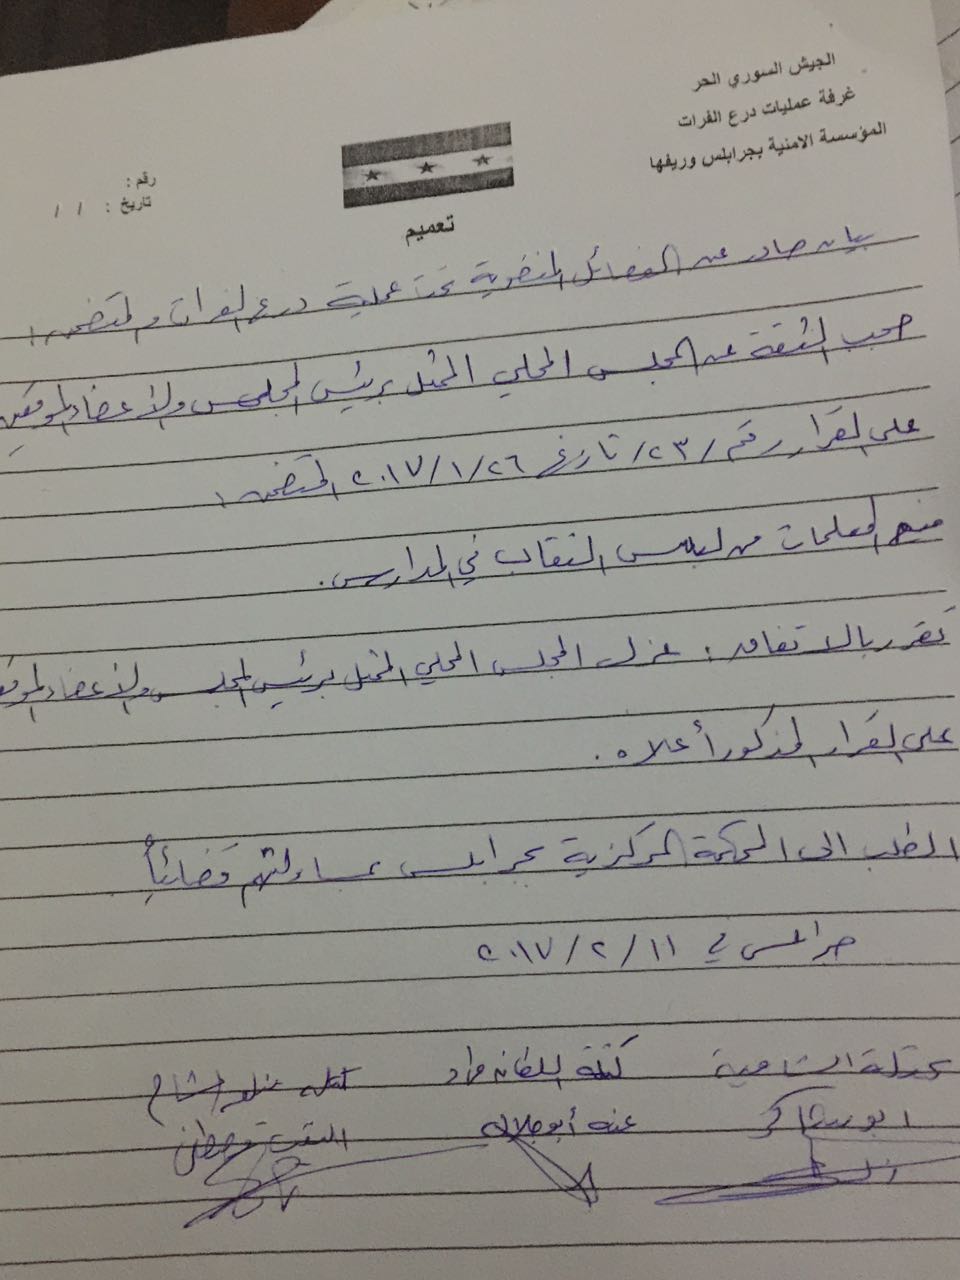 الجيش السوري الحر
غرفة عمليات درع الفرات
المؤسسة الامنية بجرابلس وريفها
رقم :
تاريخ : / /
تعميم
بيان صادر عن الفصائل المنضوية تحت عملية درع الفرات والمتضمن :
سحب الثقة عن المجلس المحلي الممثل برئيس المجلس والأعضاء الموقعين
على القرار رقم /٢٣/ تاريخ ٢٠١٧/١/٢٦ المتضمن :
منع المعلمات من لبس النقاب في المدارس .
تقرر بالاتفاق : عزل المجلس المحلي الممثل برئيس المجلس والأعضاء
على القرار المذكور أعلاه .
الطلب الى المحكمة المركزية بجرابلس بمساءلتهم قضائياً
جرابلس في ٢٠١٧/٢/١١
الشامية كتلة السلطان مراد كتلة
ابو عنه أبو جلال النقيب